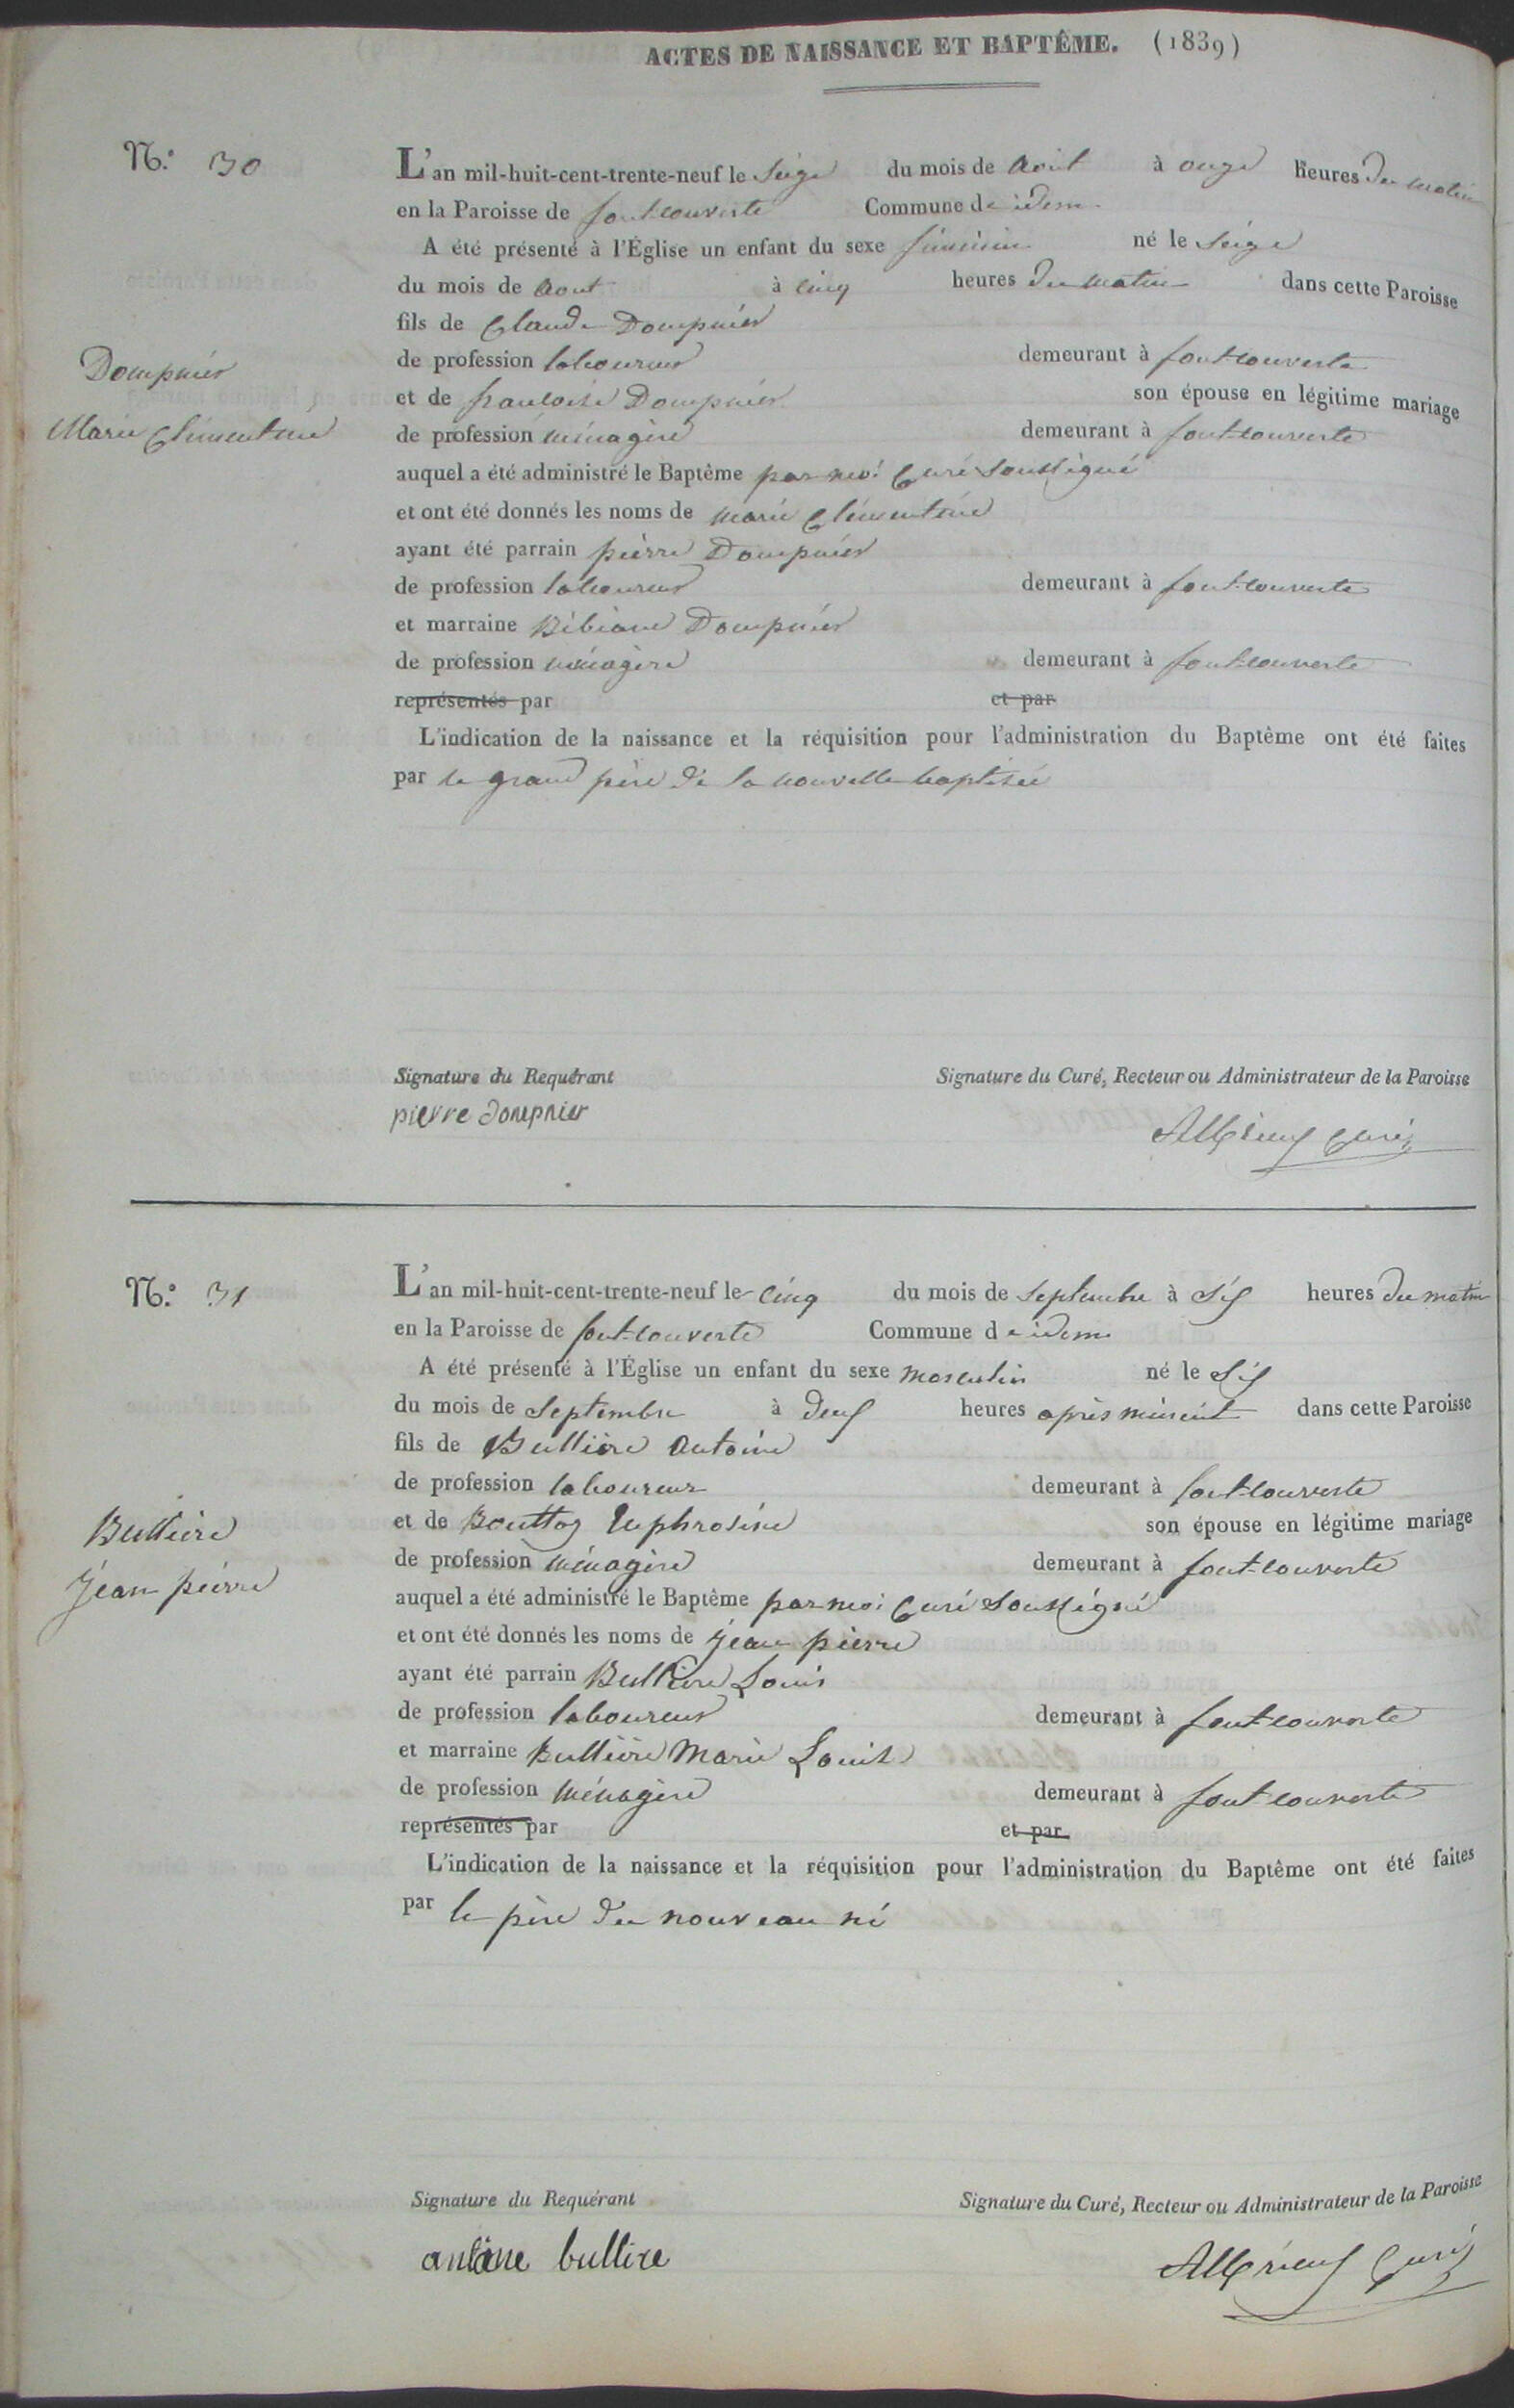 ACTES DE NAISSANCE ET BAPTÊME. (1839)
N.° 30
L'an mil-huit-cent-trente-neuf le Seize du mois de Aout à onze heures du matin
en la Paroisse de fontcouverte Commune de idem
A été présenté à l'Église un enfant du sexe féminin né le Seize
du mois de Aout à cinq heures du matin dans cette Paroisse
fils de Claude Dompnier
de profession laboureur demeurant à fontcouverte
et de francoise Dompnier son épouse en légitime mariage
Dompnier
Marie Clementine
de profession ménagère demeurant à fontcouverte
auquel a été administré le Baptême par moi Curé Soussigné
et ont été donnés les noms de marie Clémentine
ayant été parrain pierre Dompnier
de profession laboureur demeurant à fontcouverte
et marraine Bibiane Dompnier
de profession ménagère demeurant à fontcouverte
représentés par et par
L'indication de la naissance et la réquisition pour l'administration du Baptême ont été faites
par le grand père de la nouvelle baptisée
Signature du Requérant Signature du Curé, Recteur ou Administrateur de la Paroisse
pierre dompnier
curé
N.° 31
L'an mil-huit-cent-trente-neuf le cinq du mois de Septembre à Six heures du matin
en la Paroisse de fontcouverte Commune de idem
A été présenté à l'Église un enfant du sexe masculin né le Six
du mois de Septembre à deux heures après minuit dans cette Paroisse
fils de Bullière Antoine
de profession laboureur demeurant à fontcouverte
et de Bouttaz Euphrosine son épouse en légitime mariage
Bullière
Jean pierre
de profession ménagère demeurant à fontcouverte
auquel a été administré le Baptême par moi Curé Soussigné
et ont été donnés les noms de Jean pierre
ayant été parrain Bullière Louis
de profession laboureur demeurant à fontcouverte
et marraine Bullière Marie Louise
de profession ménagère demeurant à fontcouverte
représentés par et par
L'indication de la naissance et la réquisition pour l'administration du Baptême ont été faites
par le père du nouveau né
Signature du Requérant Signature du Curé, Recteur ou Administrateur de la Paroisse
antoine bullire
Curé